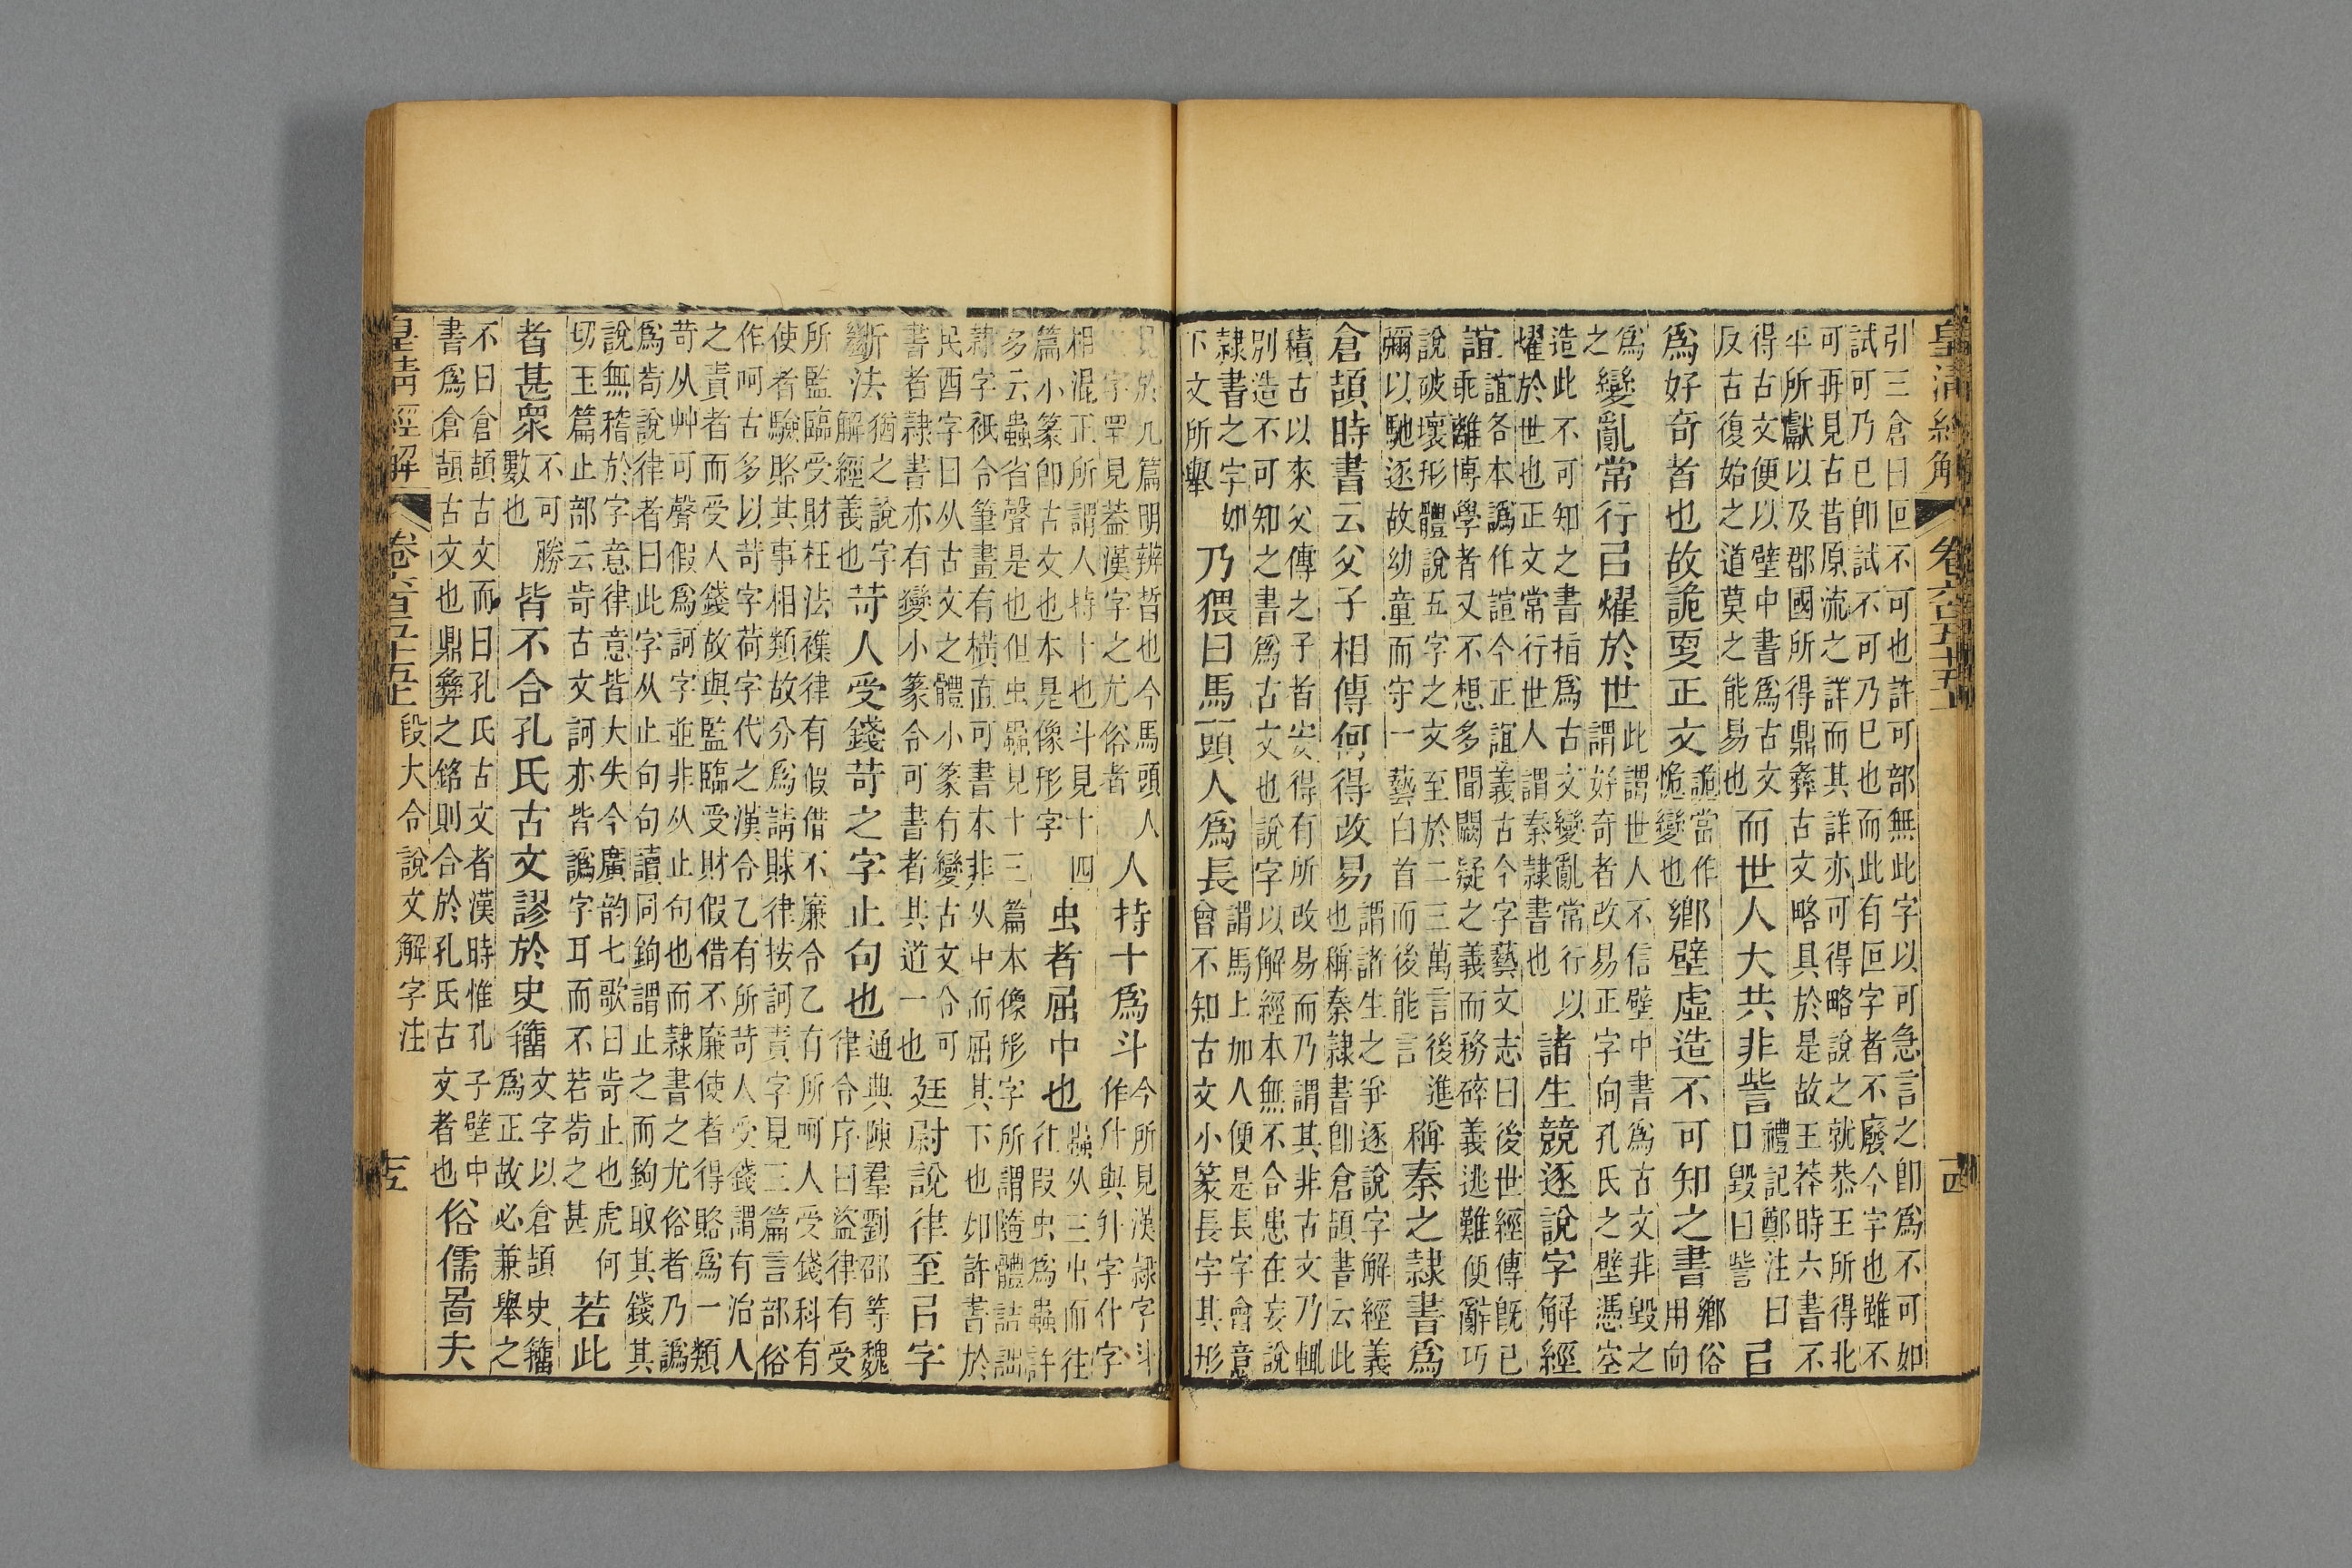 皇清經解 卷六百五十五上 十四
引三倉曰叵不可也許可部無此字以可急言之卽爲不可如
試可乃已卽試不可乃已也而此有叵字者不廢今字也雖不
可再見古昔原流之詳而其詳亦可得略說之就恭王所得北
平所獻以及郡國所得鼎彝古文略具於是故王莽時六書不
得古文便以壁中書爲古文
反古復始之道莫之能易也
而世人大共非訾
禮記鄭注曰
口毀曰訾
㠯
爲好奇者也故詭更正文
詭當作
恑變也
鄉壁虛造不可知之書
鄉俗
用向
爲
之
變亂常行㠯燿於世
此謂世人不信壁中書爲古文非毀之
謂好奇者改易正字向孔氏之壁憑空
造此不可知之書指爲古文變亂常行以
燿於世也正文常行世人謂秦隸書也
諸生競逐說字解經
誼
誼各本譌作諠今正誼義古今字藝文志曰後世經傳旣已
乖離博學者又不想多聞闕疑之義而務碎義逃難便辭巧
說破壞形體說五字之文至於二三萬言後進
彌以馳逐故幼童而守一藝白首而後能言
稱秦之隸書爲
倉頡時書云父子相傳何得改易
謂諸生之爭逐說字解經義
也稱秦隸書卽倉頡書云此
積古以來父傳之子者安得有所改易而乃謂其非古文乃輒
別造不可知之書爲古文也說字以解經本無不合患在妄說
隸書之字如
下文所舉
乃猥曰馬頭人爲長
謂馬上加人便是長字會意
曾不知古文小篆長字其形
見於九篇明辨晳也今馬頭人
字罕見葢漢字之尤俗者
人持十爲斗
今所見漢隸字斗
作什與升字什字
相混正所謂人持十也斗見十四
篇小篆卽古文也本是像形字
虫者屈中也
蟲从三虫而往
往叚虫爲蟲許
多云蟲省聲是也但虫蟲見十三篇本像形字所謂隨體詰詘
隸字祇令筆畫有橫直可書本非从中而屈其下也如許書於
民酉字曰从古文之體小篆有變古文令可
書者隸書亦有變小篆令可書者其道一也
廷尉說律至㠯字
斷法
猶之說字
解經義也
苛人受錢苛之字止句也
通典陳羣劉邵等魏
律令序曰盜律有受
所監臨受財枉法襍律有假借不廉令乙有所呵人受錢科有
使者驗賂其事相類故分爲請賕律按訶責字見三篇言部俗
作呵古多以苛字荷字代之漢令乙有所苛人受錢謂有治人
之責者而受人錢故與監臨受財假借不廉使者得賂爲一類
苛从艸可聲假爲訶字並非从止句也而隸書之尤俗者乃譌
爲㱔說律者曰此字从止句句讀同鉤謂止之而鉤取其錢其
說無稽於字意律意皆大失今廣韵七歌曰㱔止也虎何
切玉篇止部云㱔古文訶亦皆譌字耳而不若㱔之甚
若此
者甚衆
不可勝
數也
皆不合孔氏古文謬於史籒
文字以倉頡史籒
爲正故必兼舉之
不曰倉頡古文而曰孔氏古文者漢時惟孔子壁中
書爲倉頡古文也鼎彝之銘則合於孔氏古文者也
俗儒啚夫
皇清經解 卷六百五十五上 段大令說文解字注 十五